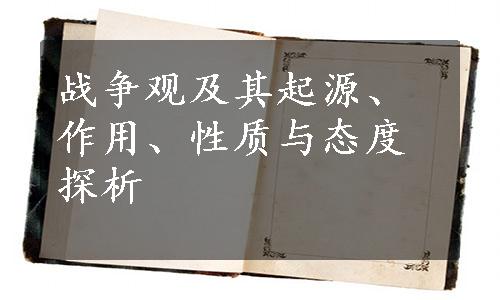 战争观及其起源、
作用、性质与态度
探析